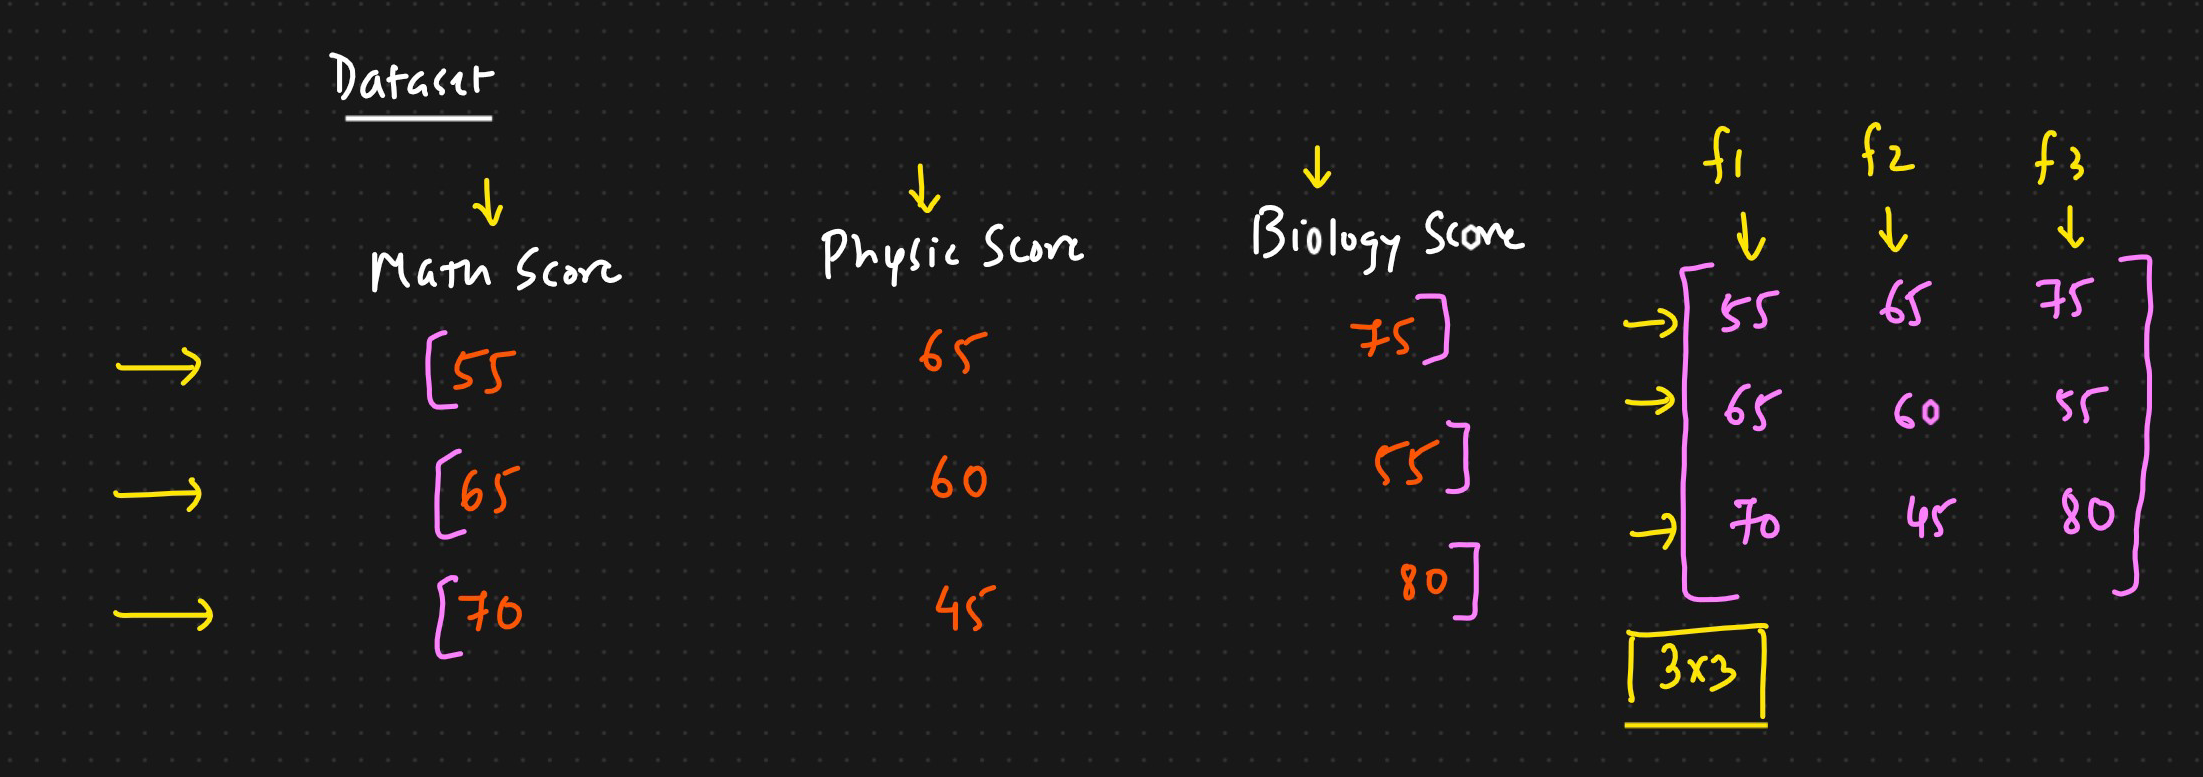 Dataset
f1 f2 f3
Math Score Physic Score Biology Score
[55 65 75]
[65 60 55]
[70 45 80]
55 65 75
65 60 55
70 45 80
3x3